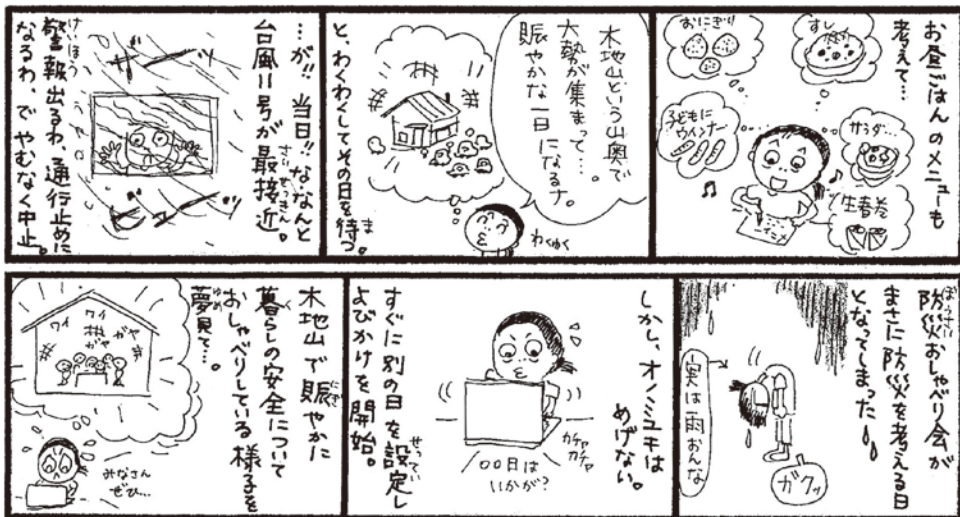 お昼ごはんのメニューも
考えて…
おにぎり
すし
子どもに
ウインナー
サラダ…
生春巻
メニュー
木地山という山奥で
大勢が集まって…。
賑やかな一日になるナ。
わくわく
と、わくわくしてその日を待つ。
…が!! 当日!! な、なんと
台風11号が最接近。
ザーッ
ビューッ
警報出るわ、通行止めに
なるわ、で やむなく中止。
防災おしゃべり会が
まさに防災を考える日
となってしまった
実は雨おんな
ガクッ
しかし、オノミユキは
めげない。
カチャ
カチャ
○○日は
いかが?
すぐに別の日を設定し
よびかけを開始。
木地山で賑やかに
暮らしの安全について
おしゃべりしている様子を
夢見て…。
ワイ
ワイ
ガヤ
ガヤ
みなさん
ぜひ…